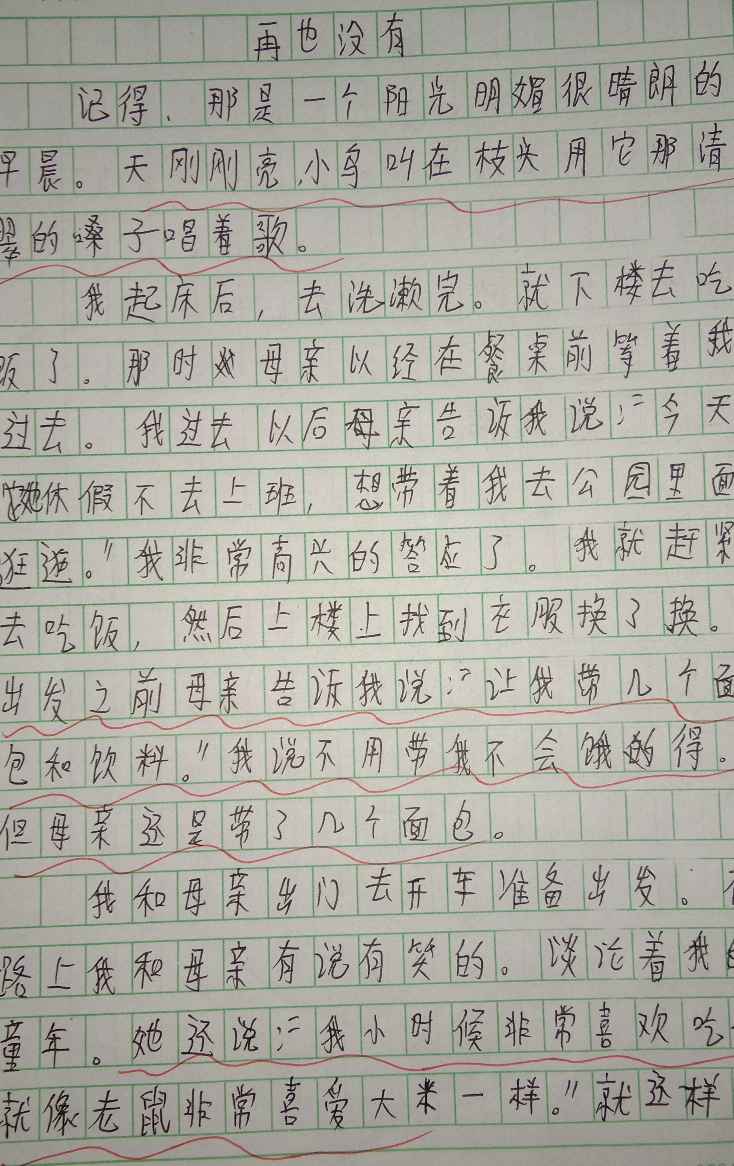 再也没有
记得、那是一个阳光明媚很晴朗的
早晨。天刚刚亮,小鸟叫在枝头用它那清
翠的嗓子唱着歌。
我起床后,去洗漱完。就下楼去吃
饭了。那时母亲以经在餐桌前等着我
过去。我过去以后母亲告诉我说:“今天
她休假不去上班,想带着我去公园里面
逛逛。”我非常高兴的答应了。我就赶紧
去吃饭,然后上楼上找到衣服换了换。
出发之前母亲告诉我说:“让我带几个面
包和饮料。”我说不用带我不会饿的得。
但母亲还是带了几个面包。
我和母亲出门去开车准备出发。
路上我和母亲有说有笑的。谈论着我
童年。她还说:“我小时候非常喜欢吃
就像老鼠非常喜爱大米一样。”就这样